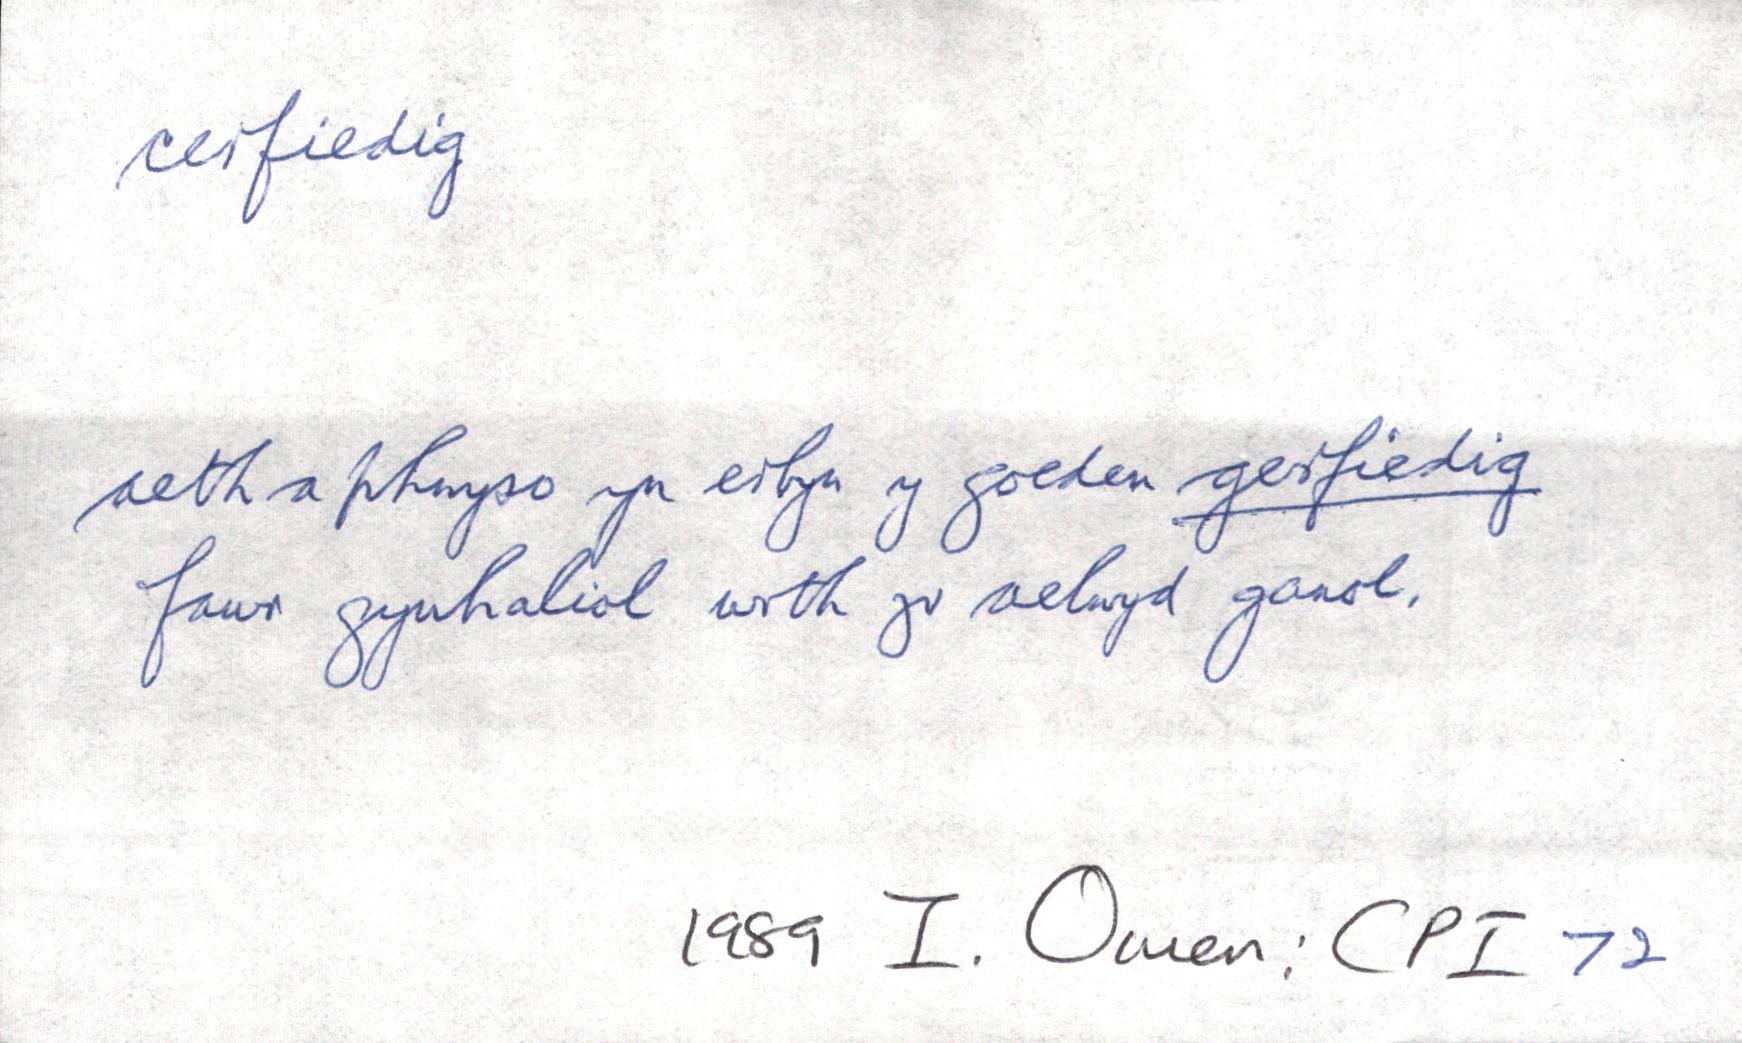 cerfiedig
aeth a phwyso yn erbyn y goeden gerfiedig
fawr gynhaliol wrth yr aelwyd ganol.
1989 I. Owen: CPI 72